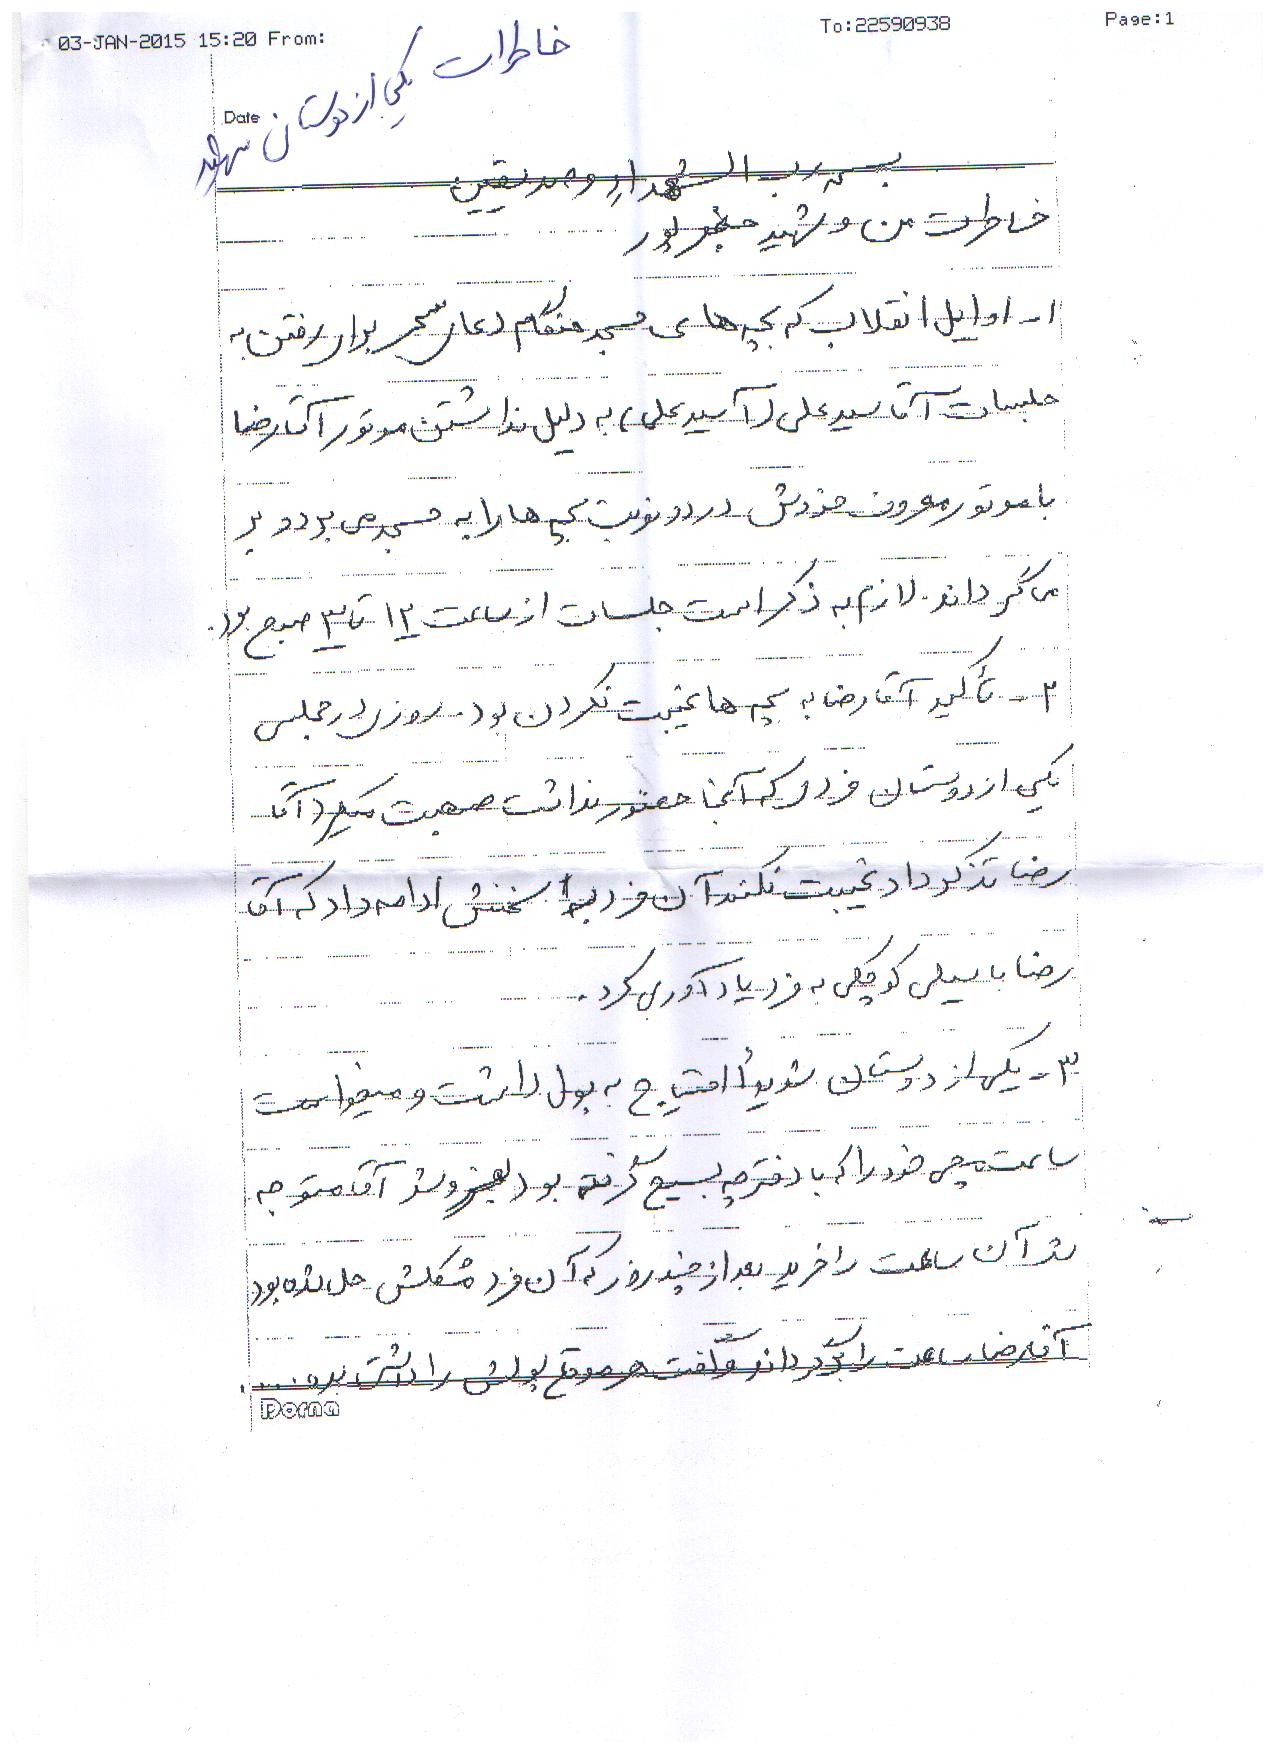 03-JAN-2015 15:20 From:
To:22590938
Page:1
خاطرات یکی از دوستان شهید
Date
بسم رب الشهداء و صدیقین
خاطرات من و شهید
۱- اوایل انقلاب که بچه های مسجد هنگام دعای سحر برای رفتن به
جلسات آقا سید علی (آ سید علی) به دلیل نداشتن موتور آقا رضا
با موتور معروف خودش در دو نوبت بچه ها را به مسجد می برد و بر
می گرداند. لازم به ذکر است جلسات از ساعت ۱۲ تا ۳ صبح بود.
۲- تأکید آقا رضا به بچه ها غیبت نکردن بود. روزی در مجلسی
یکی از دوستان فردی که آنجا حضور نداشت صحبت میکرد آقا
رضا تذکر داد غیبت نکند آن فرد به سخنش ادامه داد که آقا
رضا با سیلی کوچکی به فرد یادآوری کرد.
۳- یکی از دوستان شدیداً احتیاج به پول داشت و میخواست
ساعت مچی خود را که با دفترچه بسیج گرفته بود بفروشد آقا متوجه
شد آن ساعت را خرید بعد از چند روز که آن فرد مشکلش حل شده بود
آقا رضا ساعت را برگرداند و گفت هر موقع پولش را داشتی بده....
Dorna